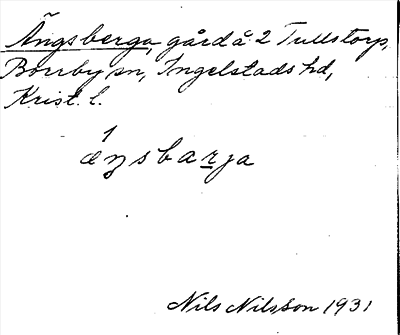 Ängsberga, gård å 2 Tullstorp,
Borrby sn, Ingelstads hd,
Krist. l.
1
æŋsbarja
Nils Nilsson 1931